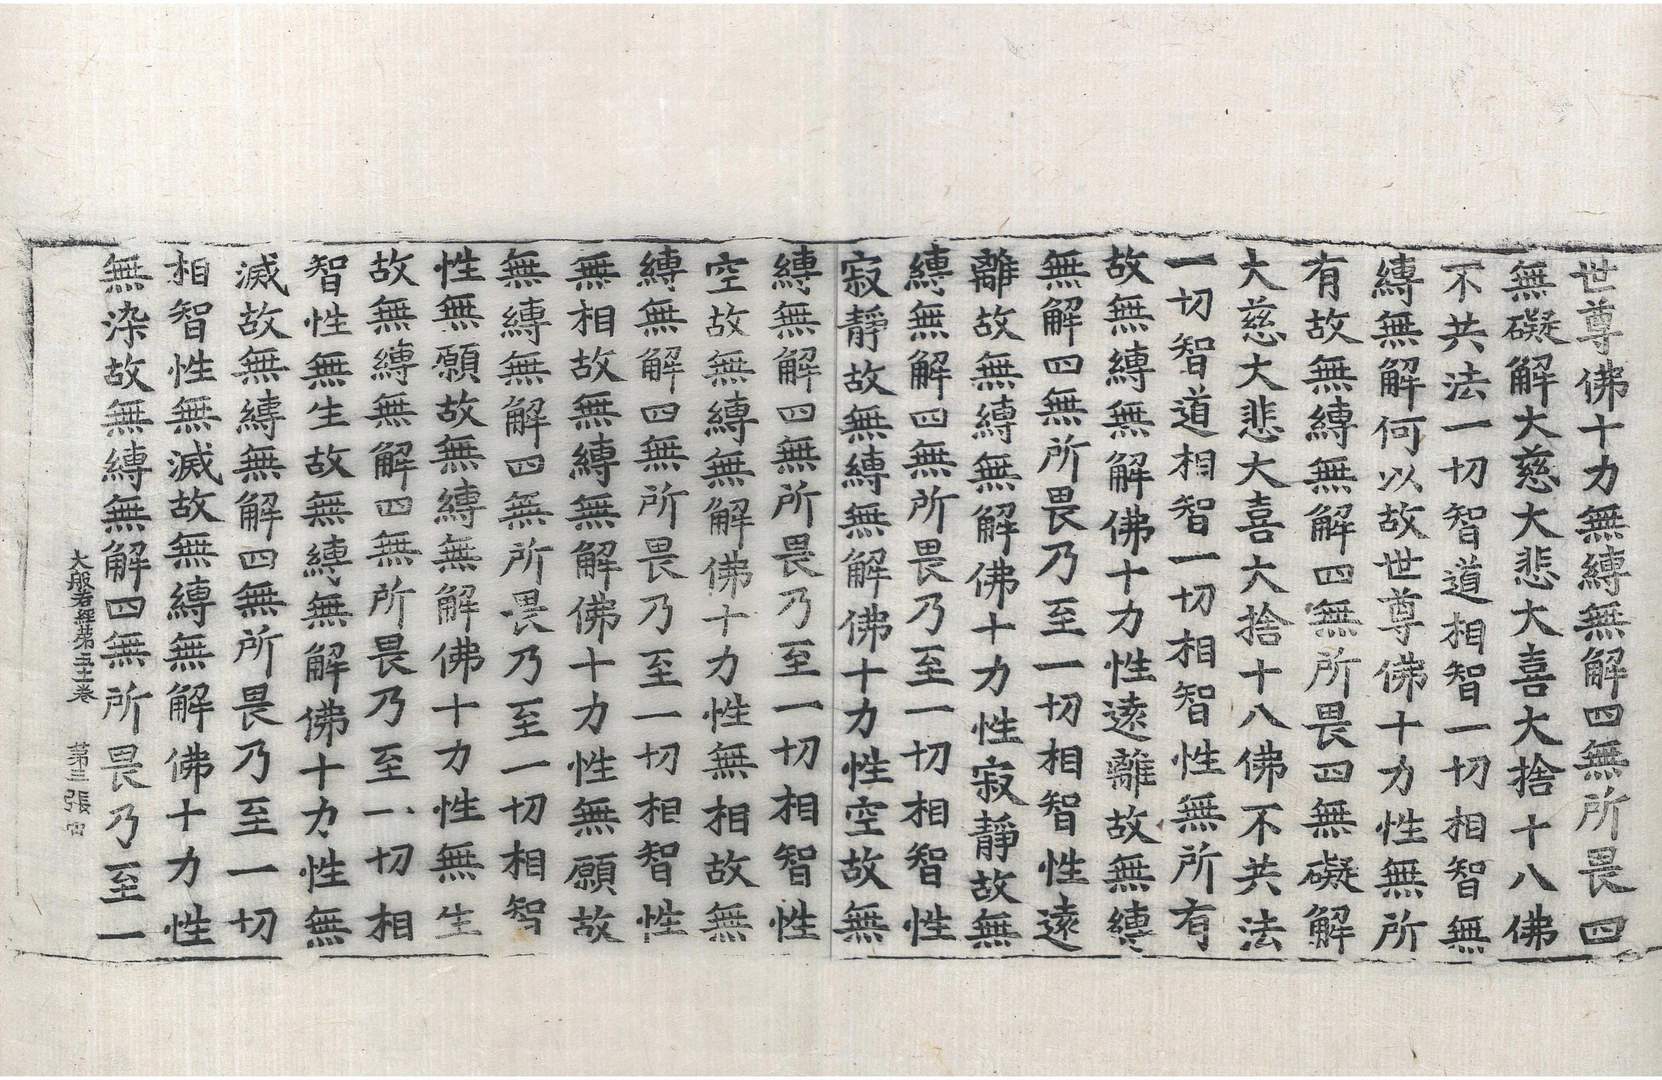 世尊佛十力無縛無解四無所畏四
無礙解大慈大悲大喜大捨十八佛
不共法一切智道相智一切相智無
縛無解何以故世尊佛十力性無所
有故無縛無解四無所畏四無礙解
大慈大悲大喜大捨十八佛不共法
一切智道相智一切相智性無所有
故無縛無解佛十力性遠離故無縛
無解四無所畏乃至一切相智性遠
離故無縛無解佛十力性寂靜故無
縛無解四無所畏乃至一切相智性
寂靜故無縛無解佛十力性空故無
縛無解四無所畏乃至一切相智性
空故無縛無解佛十力性無相故無
縛無解四無所畏乃至一切相智性
無相故無縛無解佛十力性無願故
無縛無解四無所畏乃至一切相智
性無願故無縛無解佛十力性無生
故無縛無解四無所畏乃至一切相
智性無生故無縛無解佛十力性無
滅故無縛無解四無所畏乃至一切
相智性無滅故無縛無解佛十力性
無染故無縛無解四無所畏乃至一
大般若經第五十一卷 第三張 宙